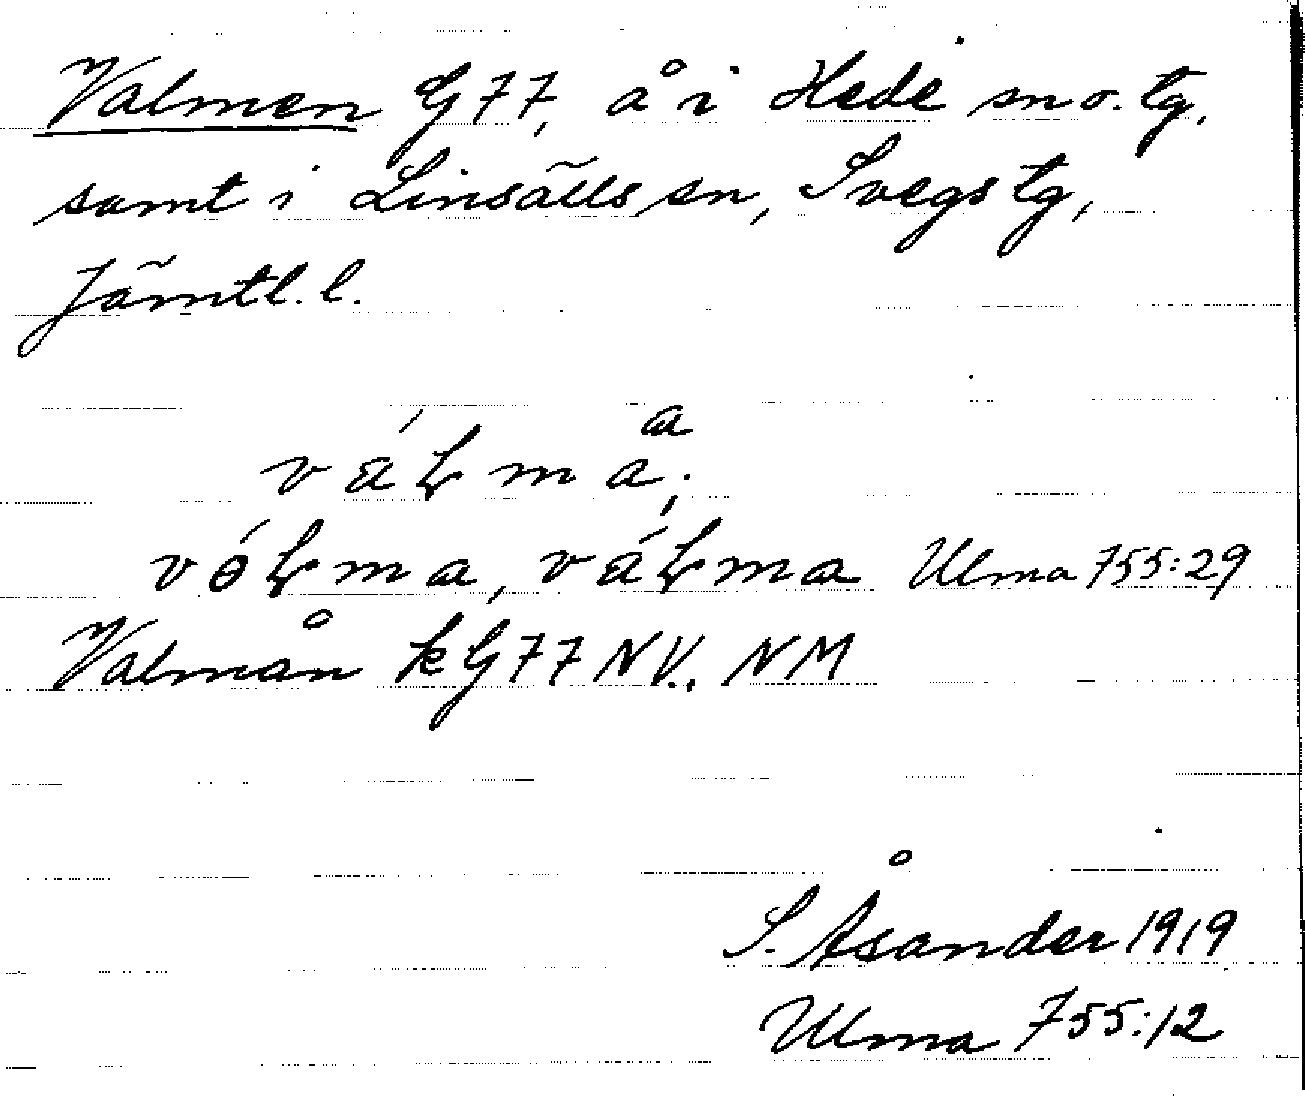 Valmen G 77, å i Hede sn o. tg,
samt i Linsälls sn, Svegs tg,
Jämtl. l.
a
váłma;
vółma, váłma Ulma 755:29
Valmån k G 77 NV., NM
S. Åsander 1919
Ulma 755:12